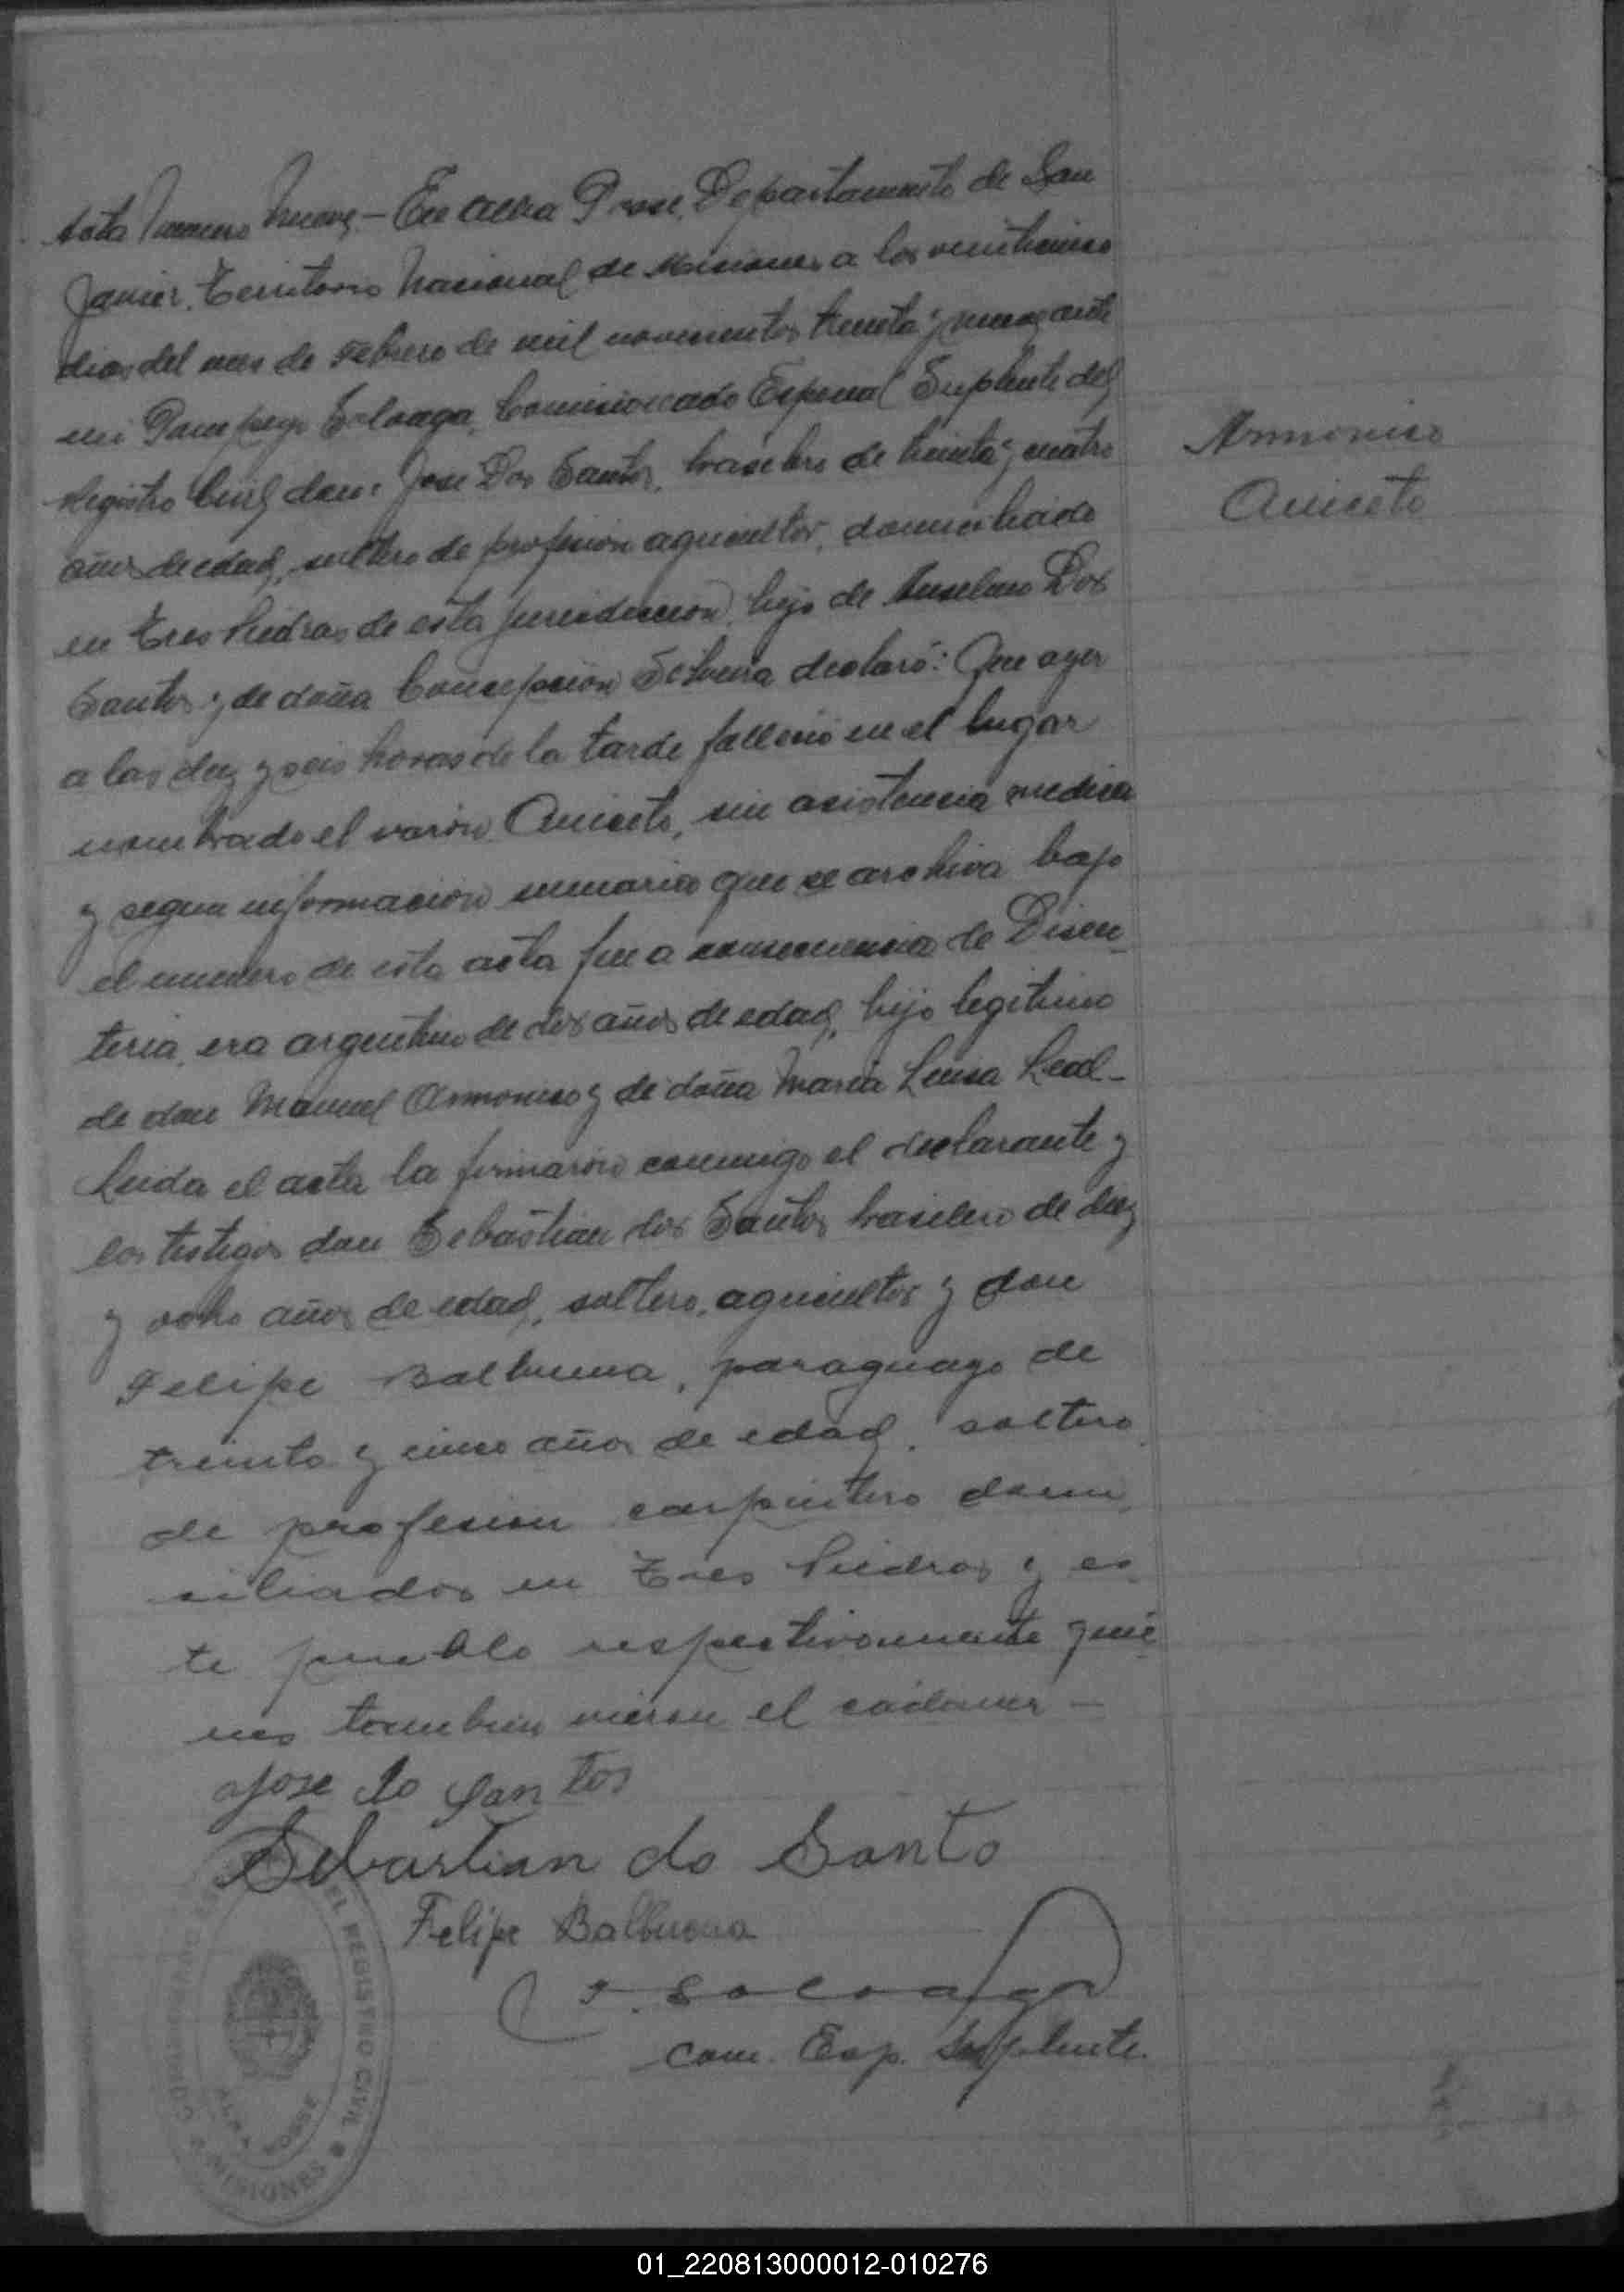 Acta Numero Nueve,– En Alba Posse, Departamento de San
Javier, Territorio Nacional de Misiones a los veinticinco
dias del mes de Febrero de mil novecientos treinta y nueve, ante
mi Pompeyo Soloaga, Comisionado Especial Suplente del
Registro Civil, don: Jose Dos Santos, brasilero de treinta y cuatro
años de edad, soltero de profesion agricultor, domiciliado
en Tres Piedras de esta jurisdiccion, hijo de Anselmo Dos
Santos y de doña Concepcion declaró: Que ayer
a las diez y seis horas de la tarde fallecio en el lugar
nombrado el varon Aniceto, sin asistencia medica
y segun informacion sumaria que se archiva bajo
el numero de esta acta fue a consecuencia de Disen-
teria, era argentino de dos años de edad, hijo legitimo
de don Manuel Armonico y de doña Maria Luisa Leal.–
Leida el acta la firmaron conmigo el declarante y
los testigos don Sebastian dos Santos brasilero de diez
y ocho años de edad, soltero, agricultor y don
Felipe Balbuena, paraguayo de
treinta y cinco años de edad, soltero
de profesion carpintero domi-
ciliados en Tres Piedras y es-
te pueblo respectivamente quie-
nes tambien vieron el cadaver –
Jose do Santos
Sebastian do Santo
Felipe Balbuena
P. Soloaga
Com. Esp. Suplente
Armonico
Aniceto
DEL REGISTRO CIVIL
ALBA POSSE
MISIONES
01_220813000012-010276